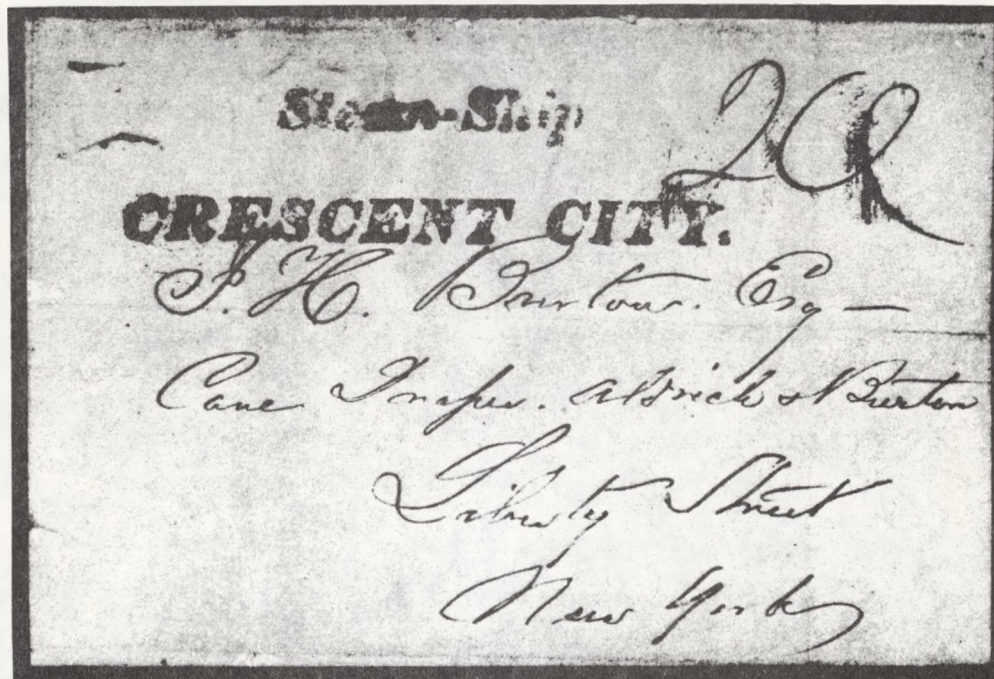 Steam-Ship 20
CRESCENT CITY.
J. H. Burton. Esq —
Care Draper. Aldrich & Burton
Liberty Street
New York